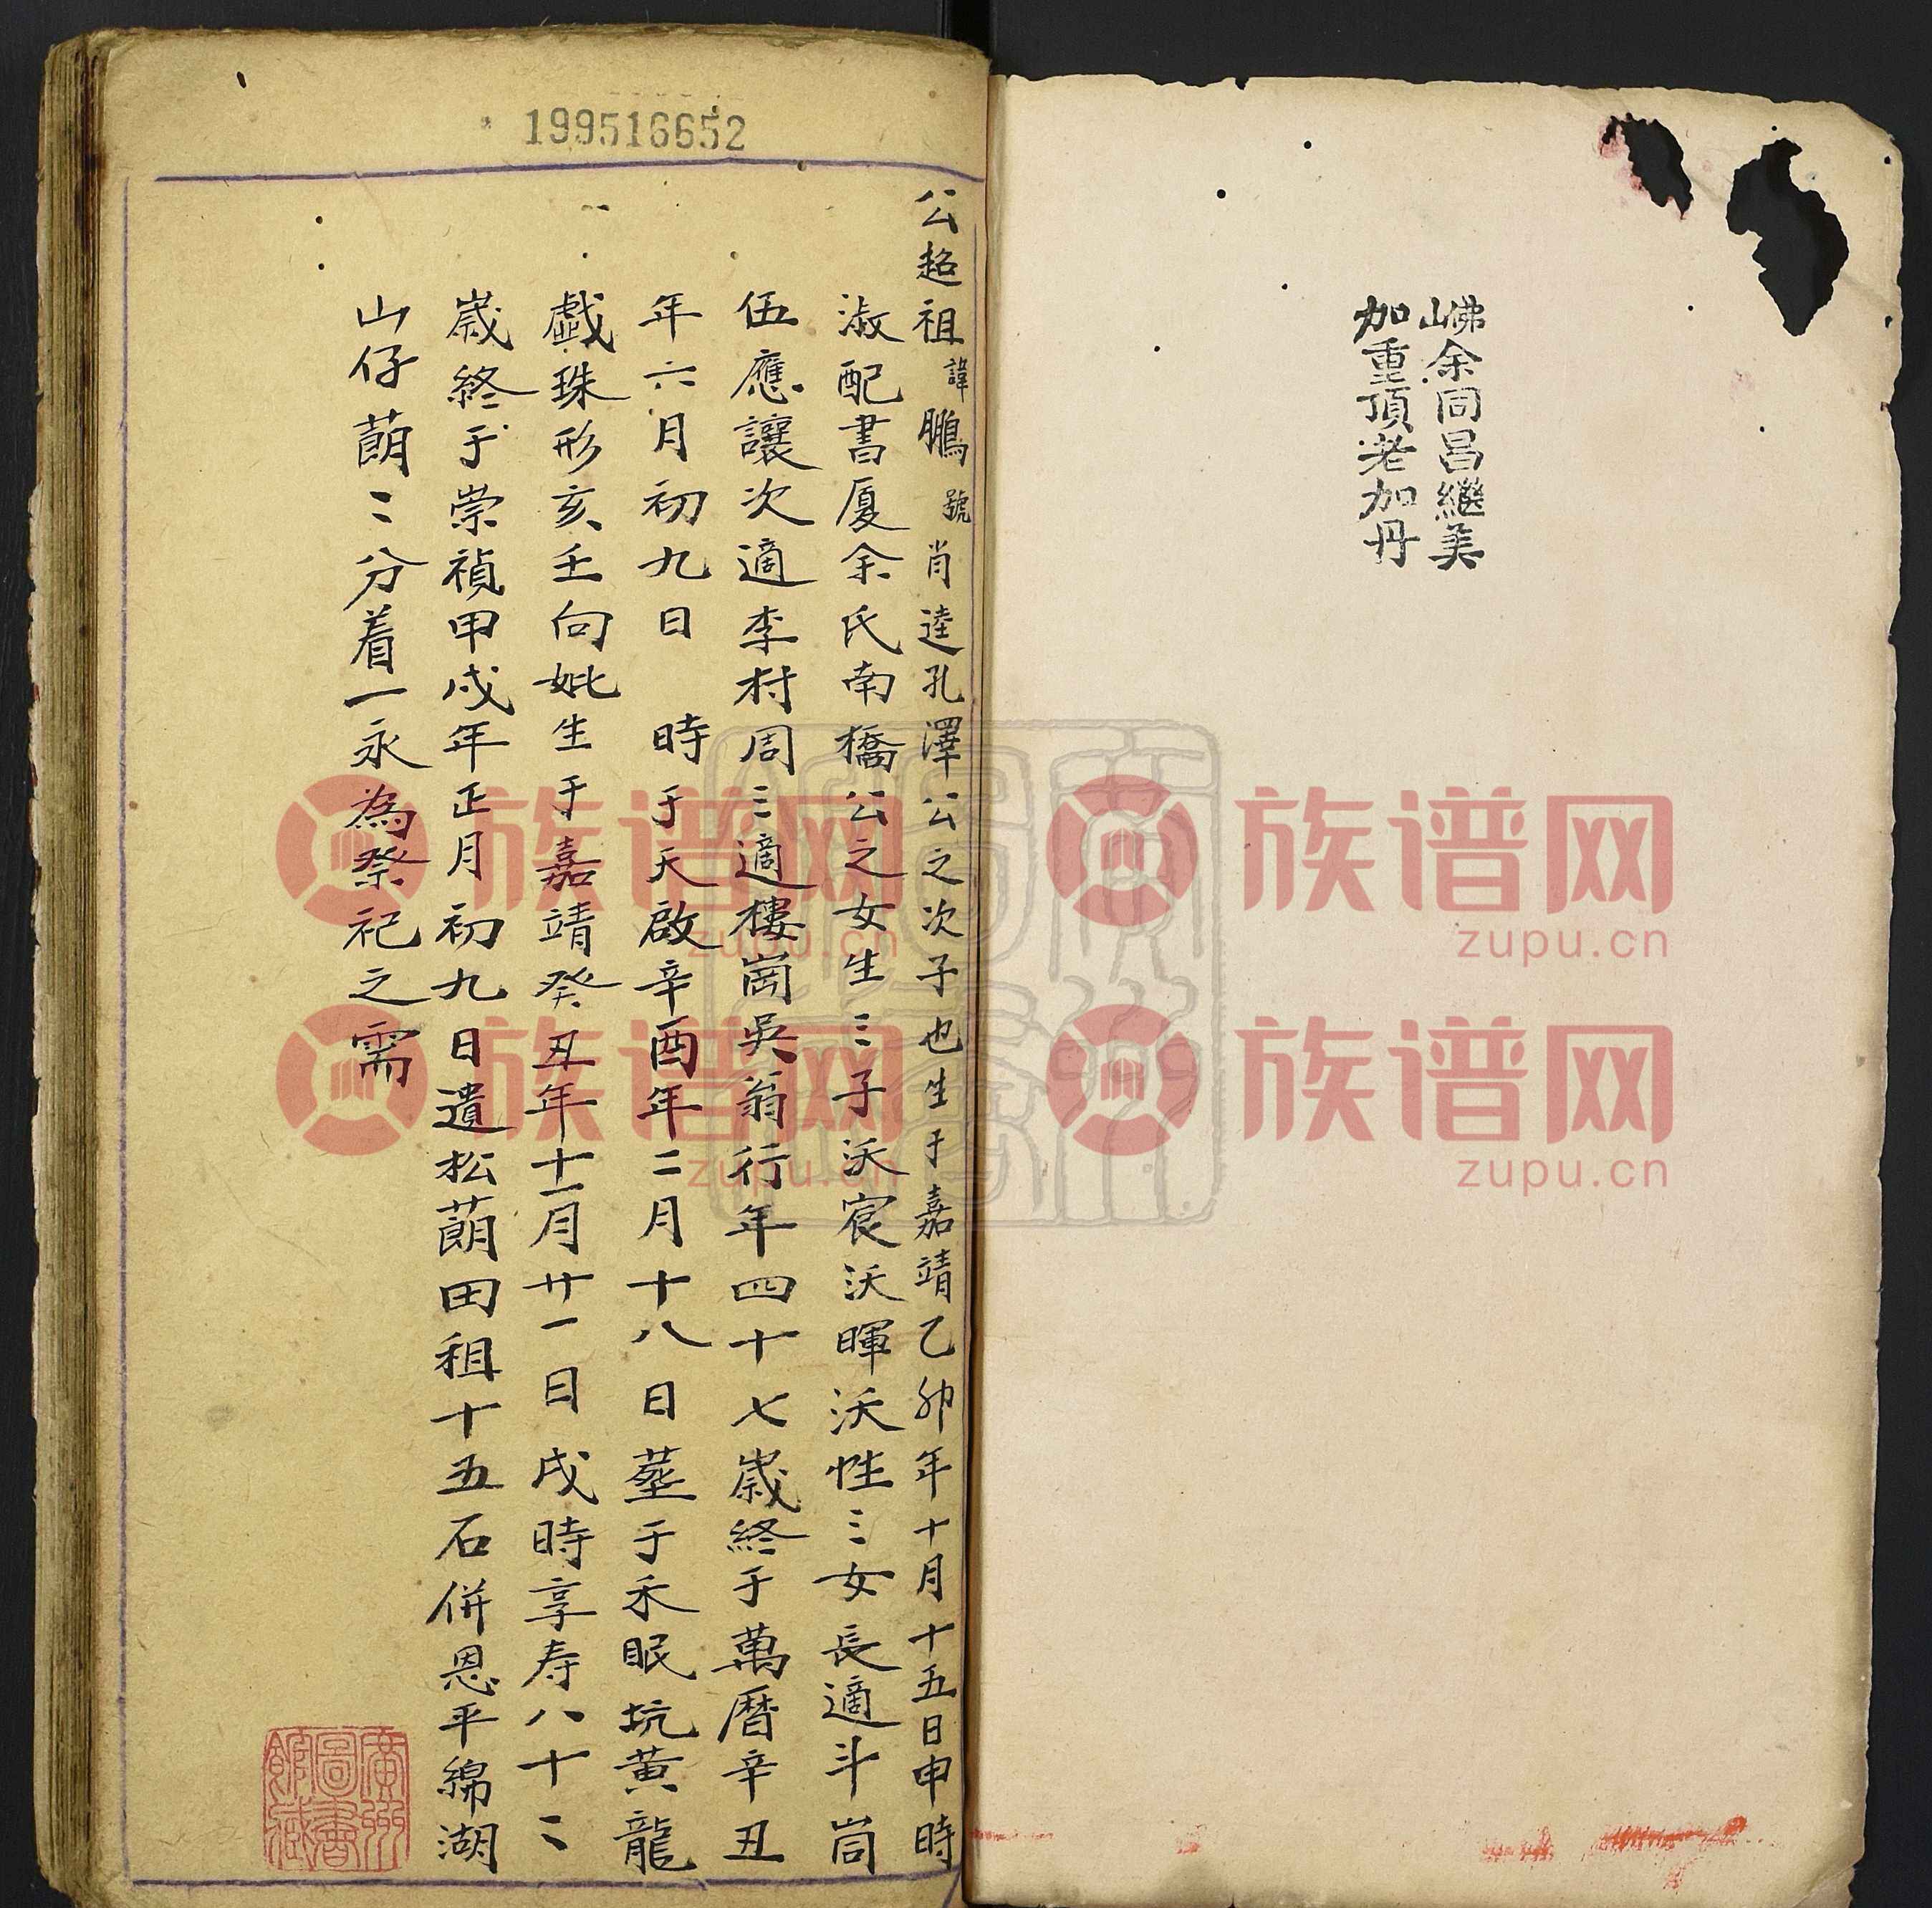 嵊余同昌繼美
加重頂老加丹
199516652
公超祖諱鵬號肖逵孔澤公之次子也生于嘉靖乙卯年十月十五日申時
淑配書厦余氏南橋公之女生三子沃宸沃暉沃性三女長適斗峝
伍應讓次適李村周三適樓崗吳翁行年四十七歲終于萬曆辛丑
年六月初九日 時于天啟辛酉年二月十八日塟于禾眠坑黃龍
戲珠形亥壬向妣生于嘉靖癸丑年十一月廿一日戌時享寿八十二
歲終于崇禎甲戌年正月初九日遺松蓢田租十五石併恩平綿湖
山仔蓢二分着一永為祭祀之需
廣州圖書館藏
族谱网
zupu.cn
族谱网
zupu.cn
族谱网
zupu.cn
族谱网
zupu.cn